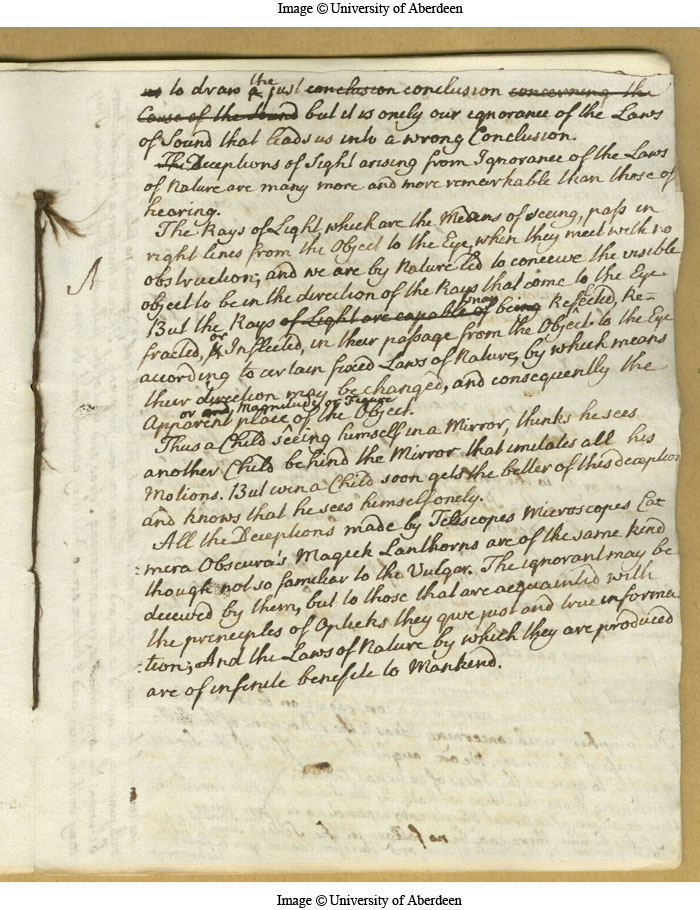 Image © University of Aberdeen
us to draw a the just conclusion conclusion concerning the
Cause of the Sound but it is onely our ignorance of the Laws
of Sound that leads us into a wrong Conclusion.
The Deceptions of Sight arising from Ignorance of the Laws
of Nature are many more and more remarkable than those of
hearing.
The Rays of Light which are the Means of seeing, pass in
right lines from the Object to the Eye, when they meet with no
obstruction; and we are by Nature led to conceive the visible
object to be in the direction of the Rays that come to the Eye
A
But the Rays of Light are capable of may being be Reflected, Re=
fracted, & or Inflected, in their passage from the Object to the Eye
according to certain fixed Laws of Nature, by which means
their direction may be changed, and consequently the
or and, Magnitude or Figure
Apparent place of the Object.
Thus a Child seeing himself in a Mirror, thinks he sees
another Child behind the Mirror that imitates all his
Motions. But even a Child soon gets the better of this deception
and knows that he sees himself onely.
All the Deceptions made by Teliscopes Microscopes Ca=
=mera Obscura's Magick Lanthorns are of the same kind
though not so familiar to the Vulgar. The ignorant may be
deceived by them, but to those that are acquainted with
the principles of Opticks they give just and true informa
=tion; And the Laws of Nature by which they are produced
are of infinite benefite to Mankind.
Image © University of Aberdeen